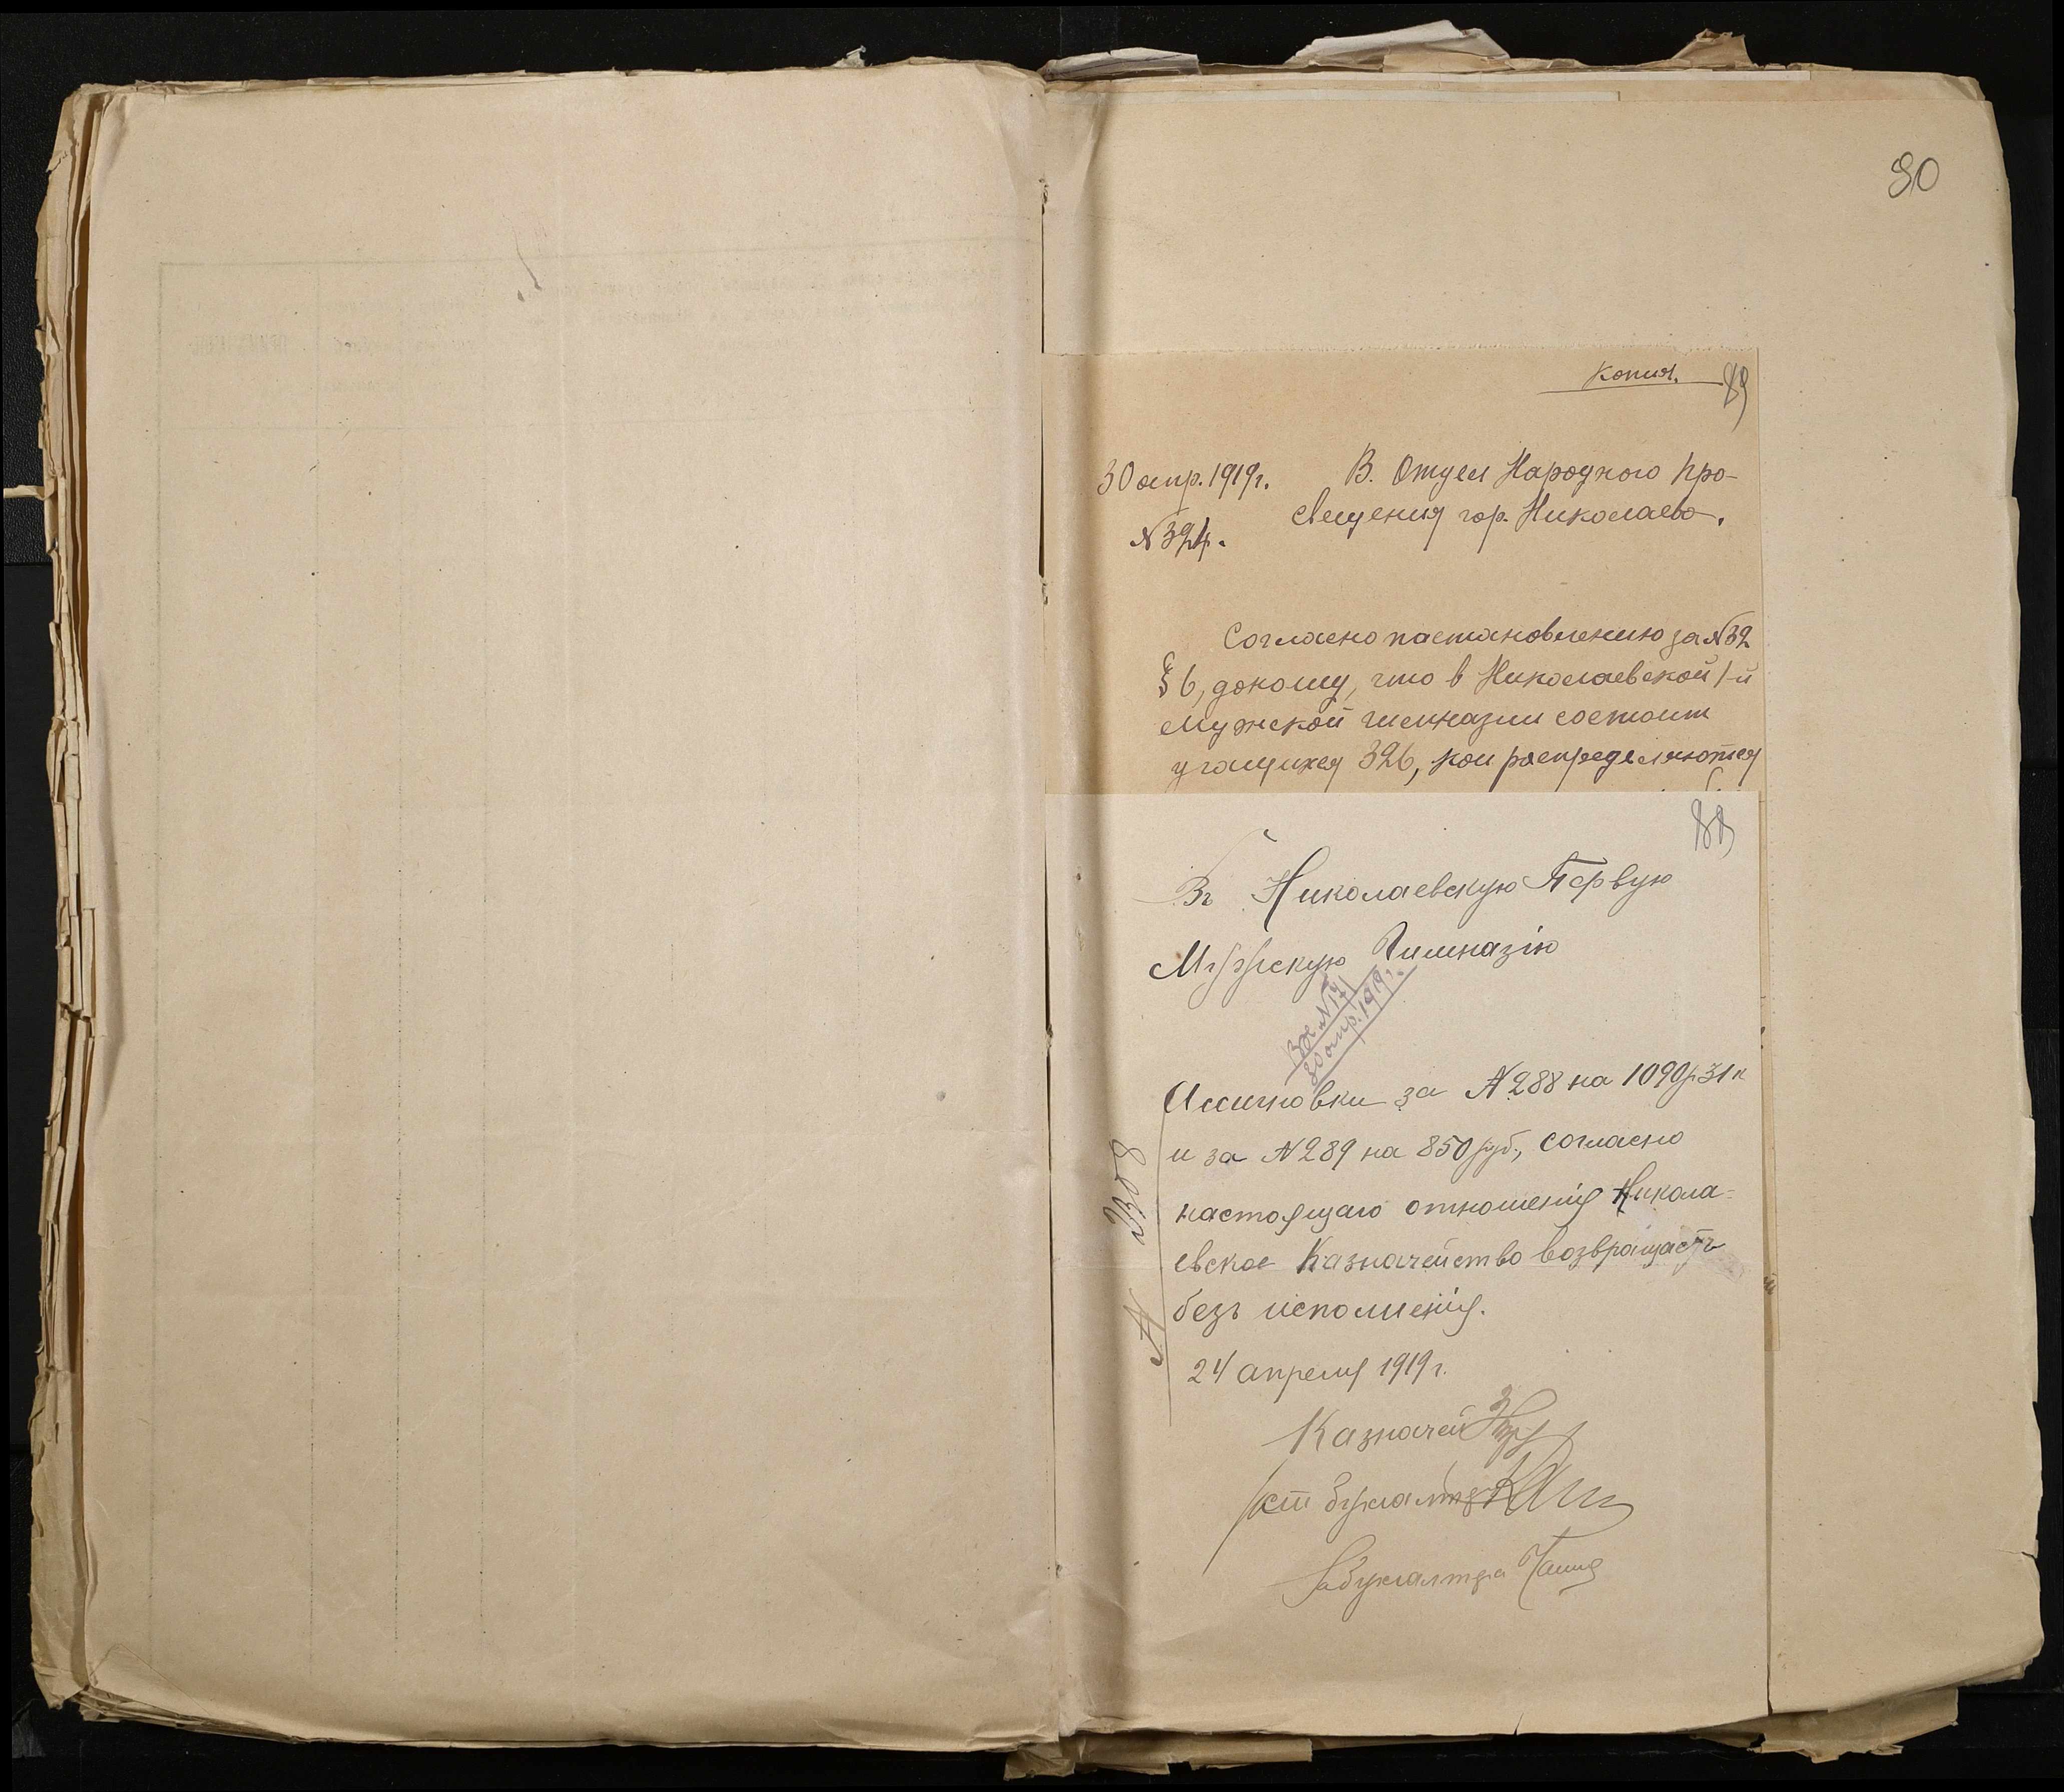 90
Копия. 89
30 апр. 1919 г. В. Отдел Народного Про-
№ 394. свещения гор. Николаева.
Согласно постановлению за № 32
§ 6, доношу, что в Николаевской 1-й
мужской гимназии состоит
учащихся 326, кои распределяются
88
Въ Николаевскую Первую
Мужскую Гимназію
Вх. № 171
30 апр. 1919 г.
Ассигновки за № 288 на 1090 р 31 к
и за № 289 на 850 руб., согласно
настоящаго отношенія Никола-
евское Казначейство возвращаетъ
безъ исполненія.
24 апреля 1919 г.
№ 2308
Казначей
Ст бухгалтер
бухгалтера